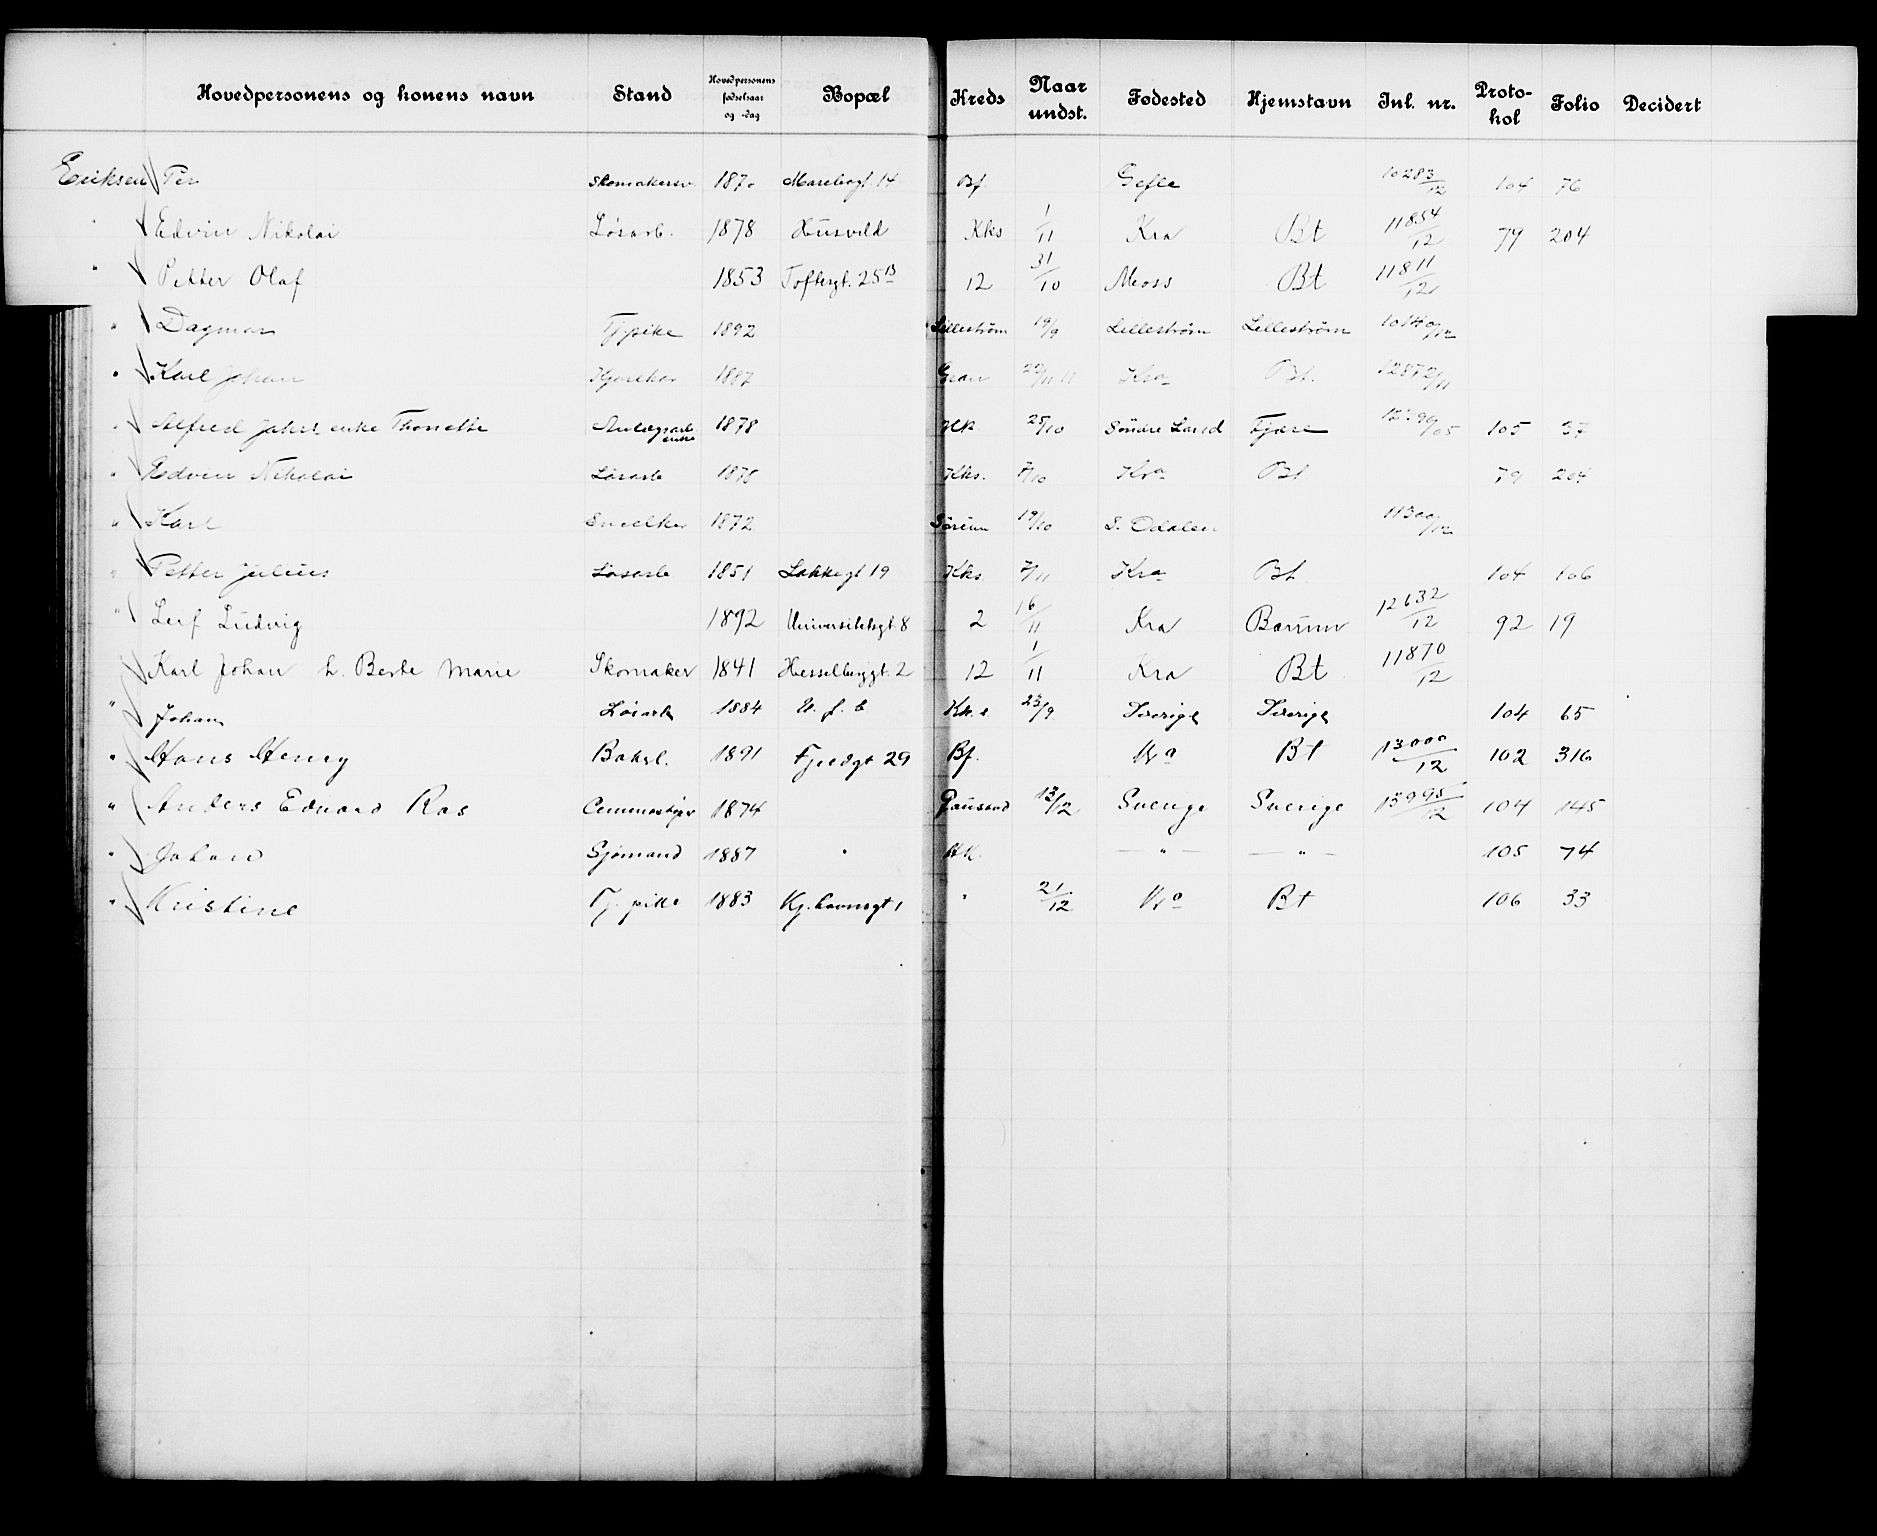 Hovedpersonens og konens navn Stand Hovedpersonens fødselsaar og -dag Bopæl Kreds Naar undst. Fødested Hjemstavn Inl. nr. Proto-kol Folio Decidert
Eriksen Per Skomakersv. 1870 14 Bf. Gefle 10283/12 104 76
" Edvin Nikolai Løsarb. 1878 Husvild Kks 1/11 Kra Bt 11854/12 79 204
" Petter Olaf 1853 Toftesgt. 25B 12 31/10 Moss Bt 11811/12
" Dagmar Tjpike 1892 Lillestrøm 19/9 Lillestrøm Lillestrøm 10140/12
" Karl Johan 1887 Gran 22/11 11 Kra Bt. 12872/11
" Alfred enke Thonette enke 1878 HK 25/10 Søndre Land Fjære 105 37
" Edvin Nikolai Løsarb 1878 Kks. 7/10 Kra Bt 79 204
" Karl Snedker 1872 Sørum 19/10 S. Odalen 11300/12
" Petter Julius Løsarb 1851 Lakkegt 19 Kks 7/11 Kra Bt 104 106
" Leif Ludvig 1892 Universitetsgt. 8 2 16/11 Kra Bærum 12632/12 92 19
Karl Johan h. Berte Marie Skomaker 1841 Hesselberggt. 2 12 1/11 Kra Bt 11870/12
" Johan Løsarb 1884 U. f. b Kk. s 23/9 Sverige Sverige 104 65
" Hans Henry Bakerl. 1891 Fjeldgt 29 Bf. Kra Bt 13000/12 102 316
" Anders Edvard Ras 1874 Gausdal 13/12 Sverige Sverige 13995/12 104 145
" Johan Sjømand 1887 " HK. — " — — " — 105 74
" Kristine Tj. pike 1883 Kj.havnsgt 1 " 21/12 Kra Bt 106 33